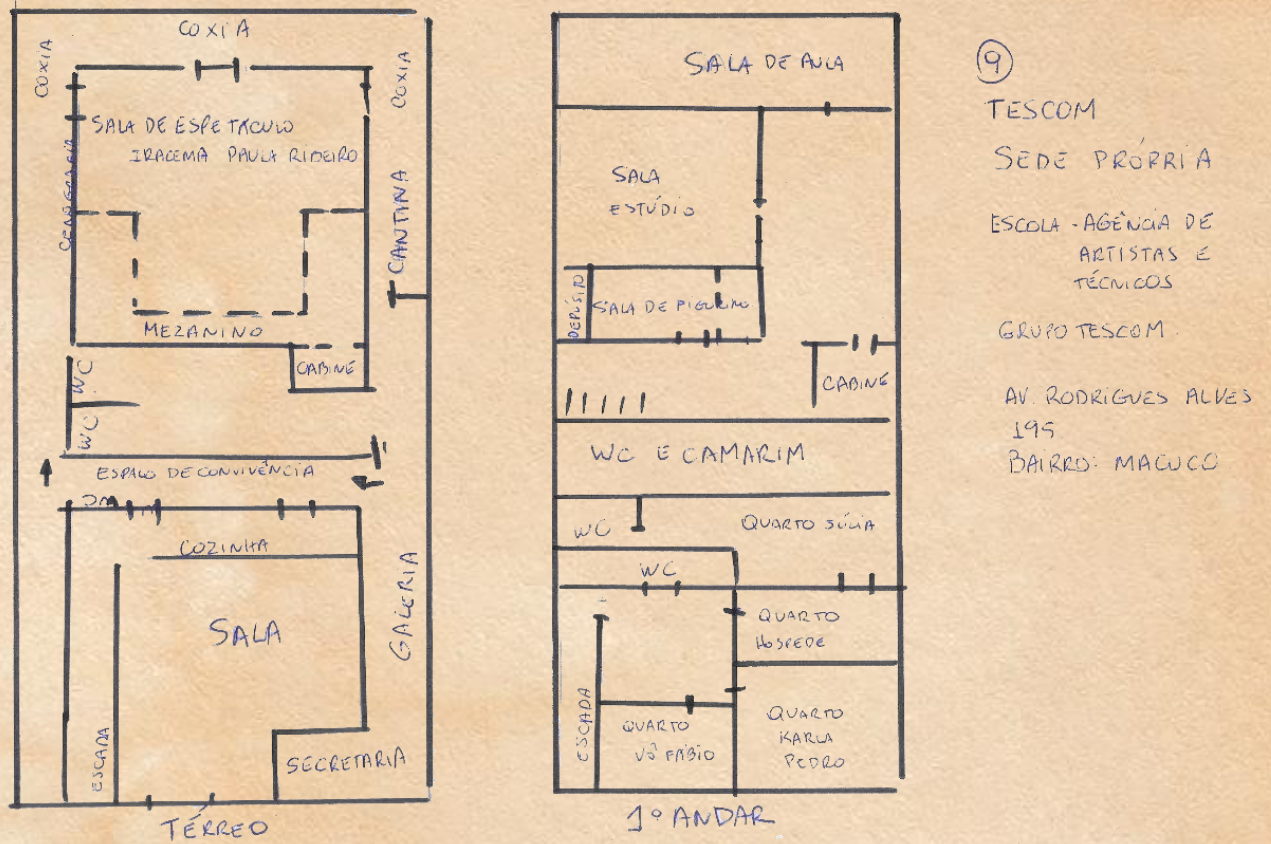 COXIA
COXIA
COXIA
SALA DE ESPETÁCULO
IRACEMA PAULA RIBEIRO
CENOGRAFIA
CANTINA
MEZANINO
CABINE
WC
WC
ESPAÇO DE CONVIVÊNCIA
COZINHA
SALA
GALERIA
ESCADA
SECRETARIA
TÉRREO
SALA DE AULA
SALA
ESTÚDIO
DEPÓSITO
SALA DE FIGURINO
CABINE
WC E CAMARIM
WC
QUARTO JÚLIA
WC
QUARTO
HOSPEDE
ESCADA
QUARTO
VÔ FÁBIO
QUARTO
KARLA
PEDRO
1º ANDAR
9
TESCOM
SEDE PRÓPRIA
ESCOLA - AGÊNCIA DE
ARTISTAS E
TÉCNICOS
GRUPO TESCOM.
AV. RODRIGUES ALVES
195
BAIRRO: MACUCO